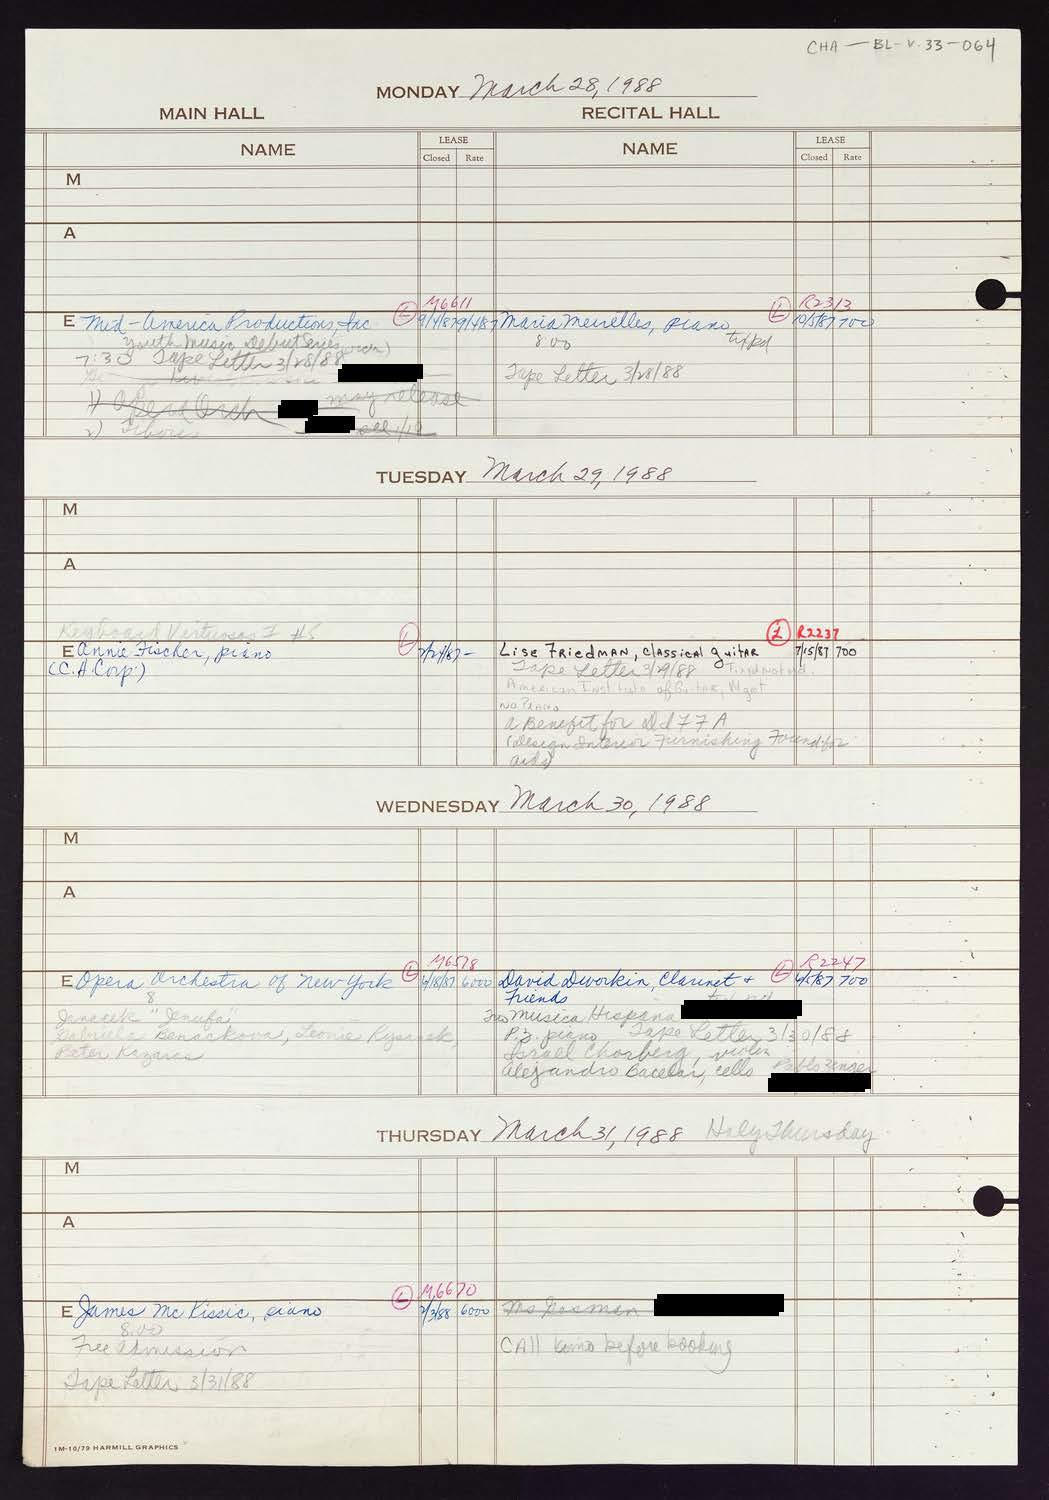 CHA-BL-V.33-064
MONDAY March 28, 1988
MAIN HALL RECITAL HALL
NAME LEASE NAME LEASE
Closed Rate Closed Rate
M
A
M6611 R2313
E Mid-America Productions, Inc. L 9/4/87 9/4/87 Maria Meirelles, piano L 10/5/87 700
Youth Music Debut Series 8:00
7:30 Tape Letter 3/28/88
Tape Letter 3/28/88
1) Orch may release
2)
TUESDAY March 29, 1988
M
A
Keyboard Virtuosos I #5 L R2237
E Annie Fischer, piano L Lise Friedman, classical guitar 7/15/87 700
(C.H. Corp.) Tape Letter 3/29/88
American Institute of Guitar, Mgmt
No Piano
a Benefit for
(Design Interior Furnishing Found for
aids)
WEDNESDAY March 30, 1988
M
A
M6578 R2247
E Opera Orchestra of New York L 6/18/87 6000 David Dworkin, Clarinet + L 700
8 Friends
Janacek "Jenufa" Musica Hispana
Gabriela Benackova, Leonie Rysanek, P.3. piano Tape Letter 3/30/88
Peter Kazaras Israel Chorberg, violin
Alejandro cello Pablo Zinger
THURSDAY March 31, 1988 Holy Thursday
M
A
M6670
E James McKissic, piano L 2/3/88 6000 Ms
8:00
Free Admission Call before booking
Tape Letter 3/31/88
1M-10/79 HARMILL GRAPHICS